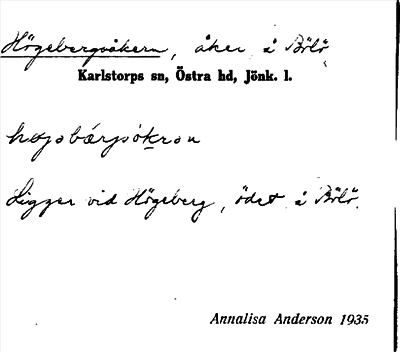 Högebergsåkern, åker å Bölö
Karlstorps sn, Östra hd, Jönk. l.
högobärjsòkrən
Ligger vid Högeberg, ödet å Bölö.
Annalisa Anderson 1935